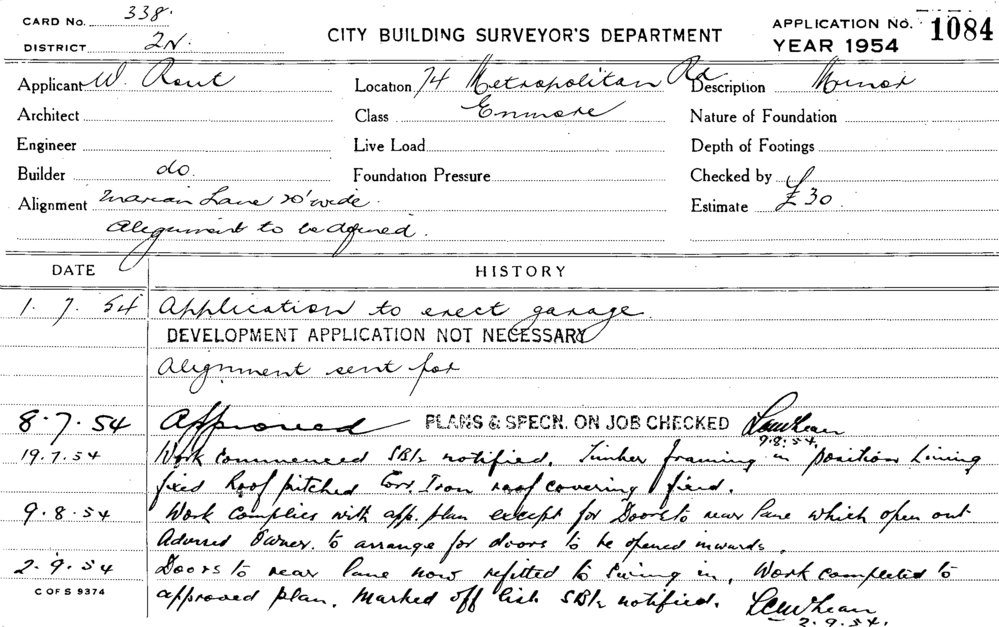 CARD No. 338.
DISTRICT 2N.
CITY BUILDING SURVEYOR'S DEPARTMENT
APPLICATION No. 1084
YEAR 1954
Applicant W. Rout Location 74 Metropolitan Rd Description Minor
Architect Class Enmore Nature of Foundation
Engineer Live Load Depth of Footings
Builder do. Foundation Pressure Checked by
Alignment Marian Lane 20' wide. Estimate £30
Alignment to be defined.
DATE HISTORY
1. 7. 54 Application to erect garage.
DEVELOPMENT APPLICATION NOT NECESSARY
Alignment sent for
8.7.54 Approved PLANS & SPECN. ON JOB CHECKED
9.8.54.
19.7.54 Work commenced notified. Timber framing in position Lining
fixed Roof pitched Corr. Iron roof covering fixed.
9.8.54 Work complies with app. plan except for Doors to rear lane which open out
Advised Owner. to arrange for doors to be opened inwards.
2.9.54 Doors to rear lane now refitted to swing in. Work completed to
C OF S 9374 approved plan. Marked off list notified.
2.9.54.